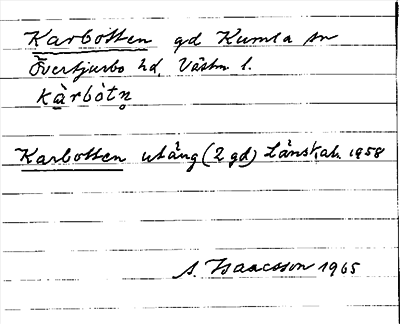 Karbotten gd Kumla sn
Övertjurbo hd, Västm l.
kàrbòtn̥
Karbotten utäng (2 gd) Länsk,ab. 1958
A. Isaacsson 1965